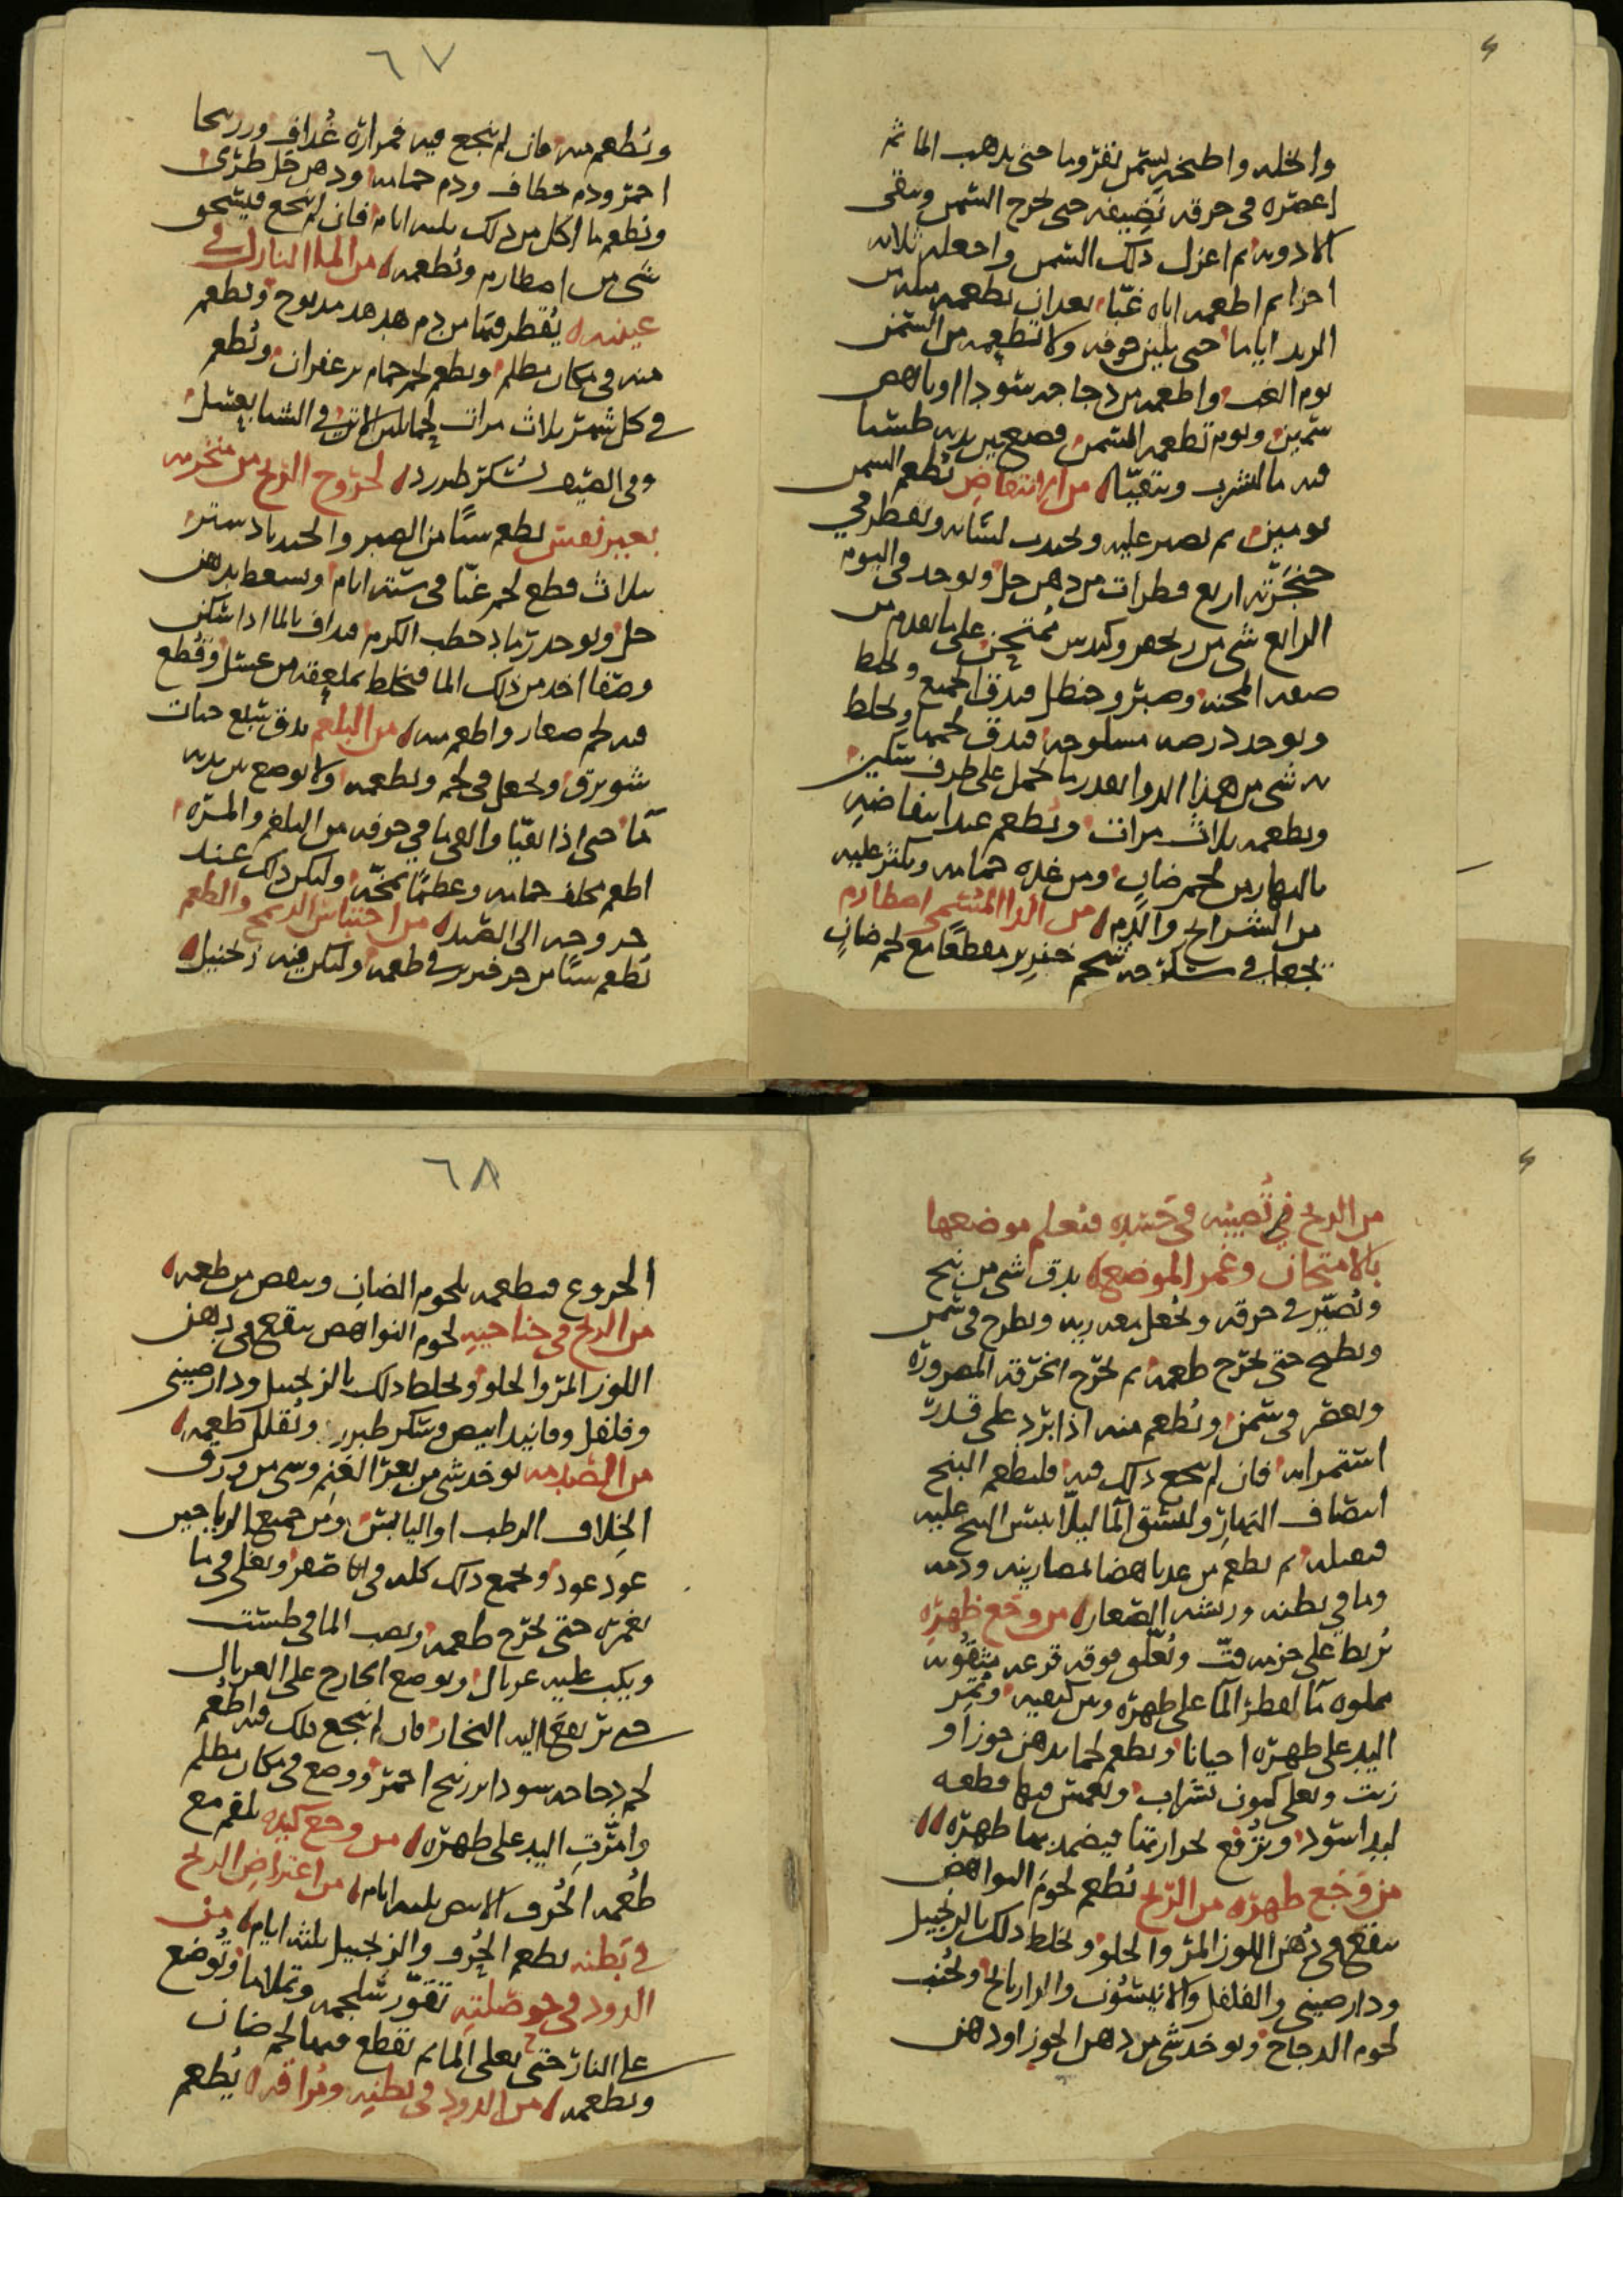 وانخله واطبخه بسمن بقر وما حتى يذهب الما ثم
اعصره في خرقة نضيفه حتى يخرج السمن وتبقى
الادويه ثم اعزل ذلك السمن واجعله ثلاثه
اجزا ثم اطعمه اياه غبّا بعد ان تطعمه مثله من
الزبد اياما حتى يلين جوفه ولا تطعمه من السمن
يوم الغب واطعمه من دجاجه سودا او ناهض
سمين ويوم تطعمه السمن فضع بين يديه طستا
فيه ما ليشرب ويتقيّا من انتفاض تطعم السمن
يومين ثم تصبر عليه وتجذب لسانه وتقطر في
حنجرته اربع قطرات من دهن حل ويوخذ في اليوم
الرابع شي من وكندس على ما تقدم من
صفه المحنه وصبر وحنظل فيدق الجميع ويخلط
ويوخذ مسلوخه فيدق لحمها ويخلط
به شي من هذا الدوا بقدر ما يحمل على طرف سكين
وتطعمه ثلاث مرات وتطعم عند انتفاضه
بالنهار من لحم ضان ومن غده حمامه ويكثر عليه
من الشرايح والدم من الدا المسمى اصطارم
يجعل في سكرجه شحم خنزير مقطعا مع لحم ضان
٦٧
وتطعم منه فان لم ينجع فيه فمرارة غُداف وزرنيخا
احمر ودم خطاف ودم حمامه ودهن حل طري
وتطعم ما اكل من ذلك ثلثه ايام فان لم ينجع فيسحق
شي من اصطارم وتُطعمه من الما النازل في
عينيه يُقطر فيهما من دم هدهد مذبوح وتطعم
منه في مكان مظلم وتطعم لحم حمام بزعفران وتُطعم
في كل شهر ثلاث مرات لحما بلبن الاتن في الشتا بعسل
وفي القيظ بسكر طبرزد لخروج الريح من منخريه
بغير نفس تطعم شيًا من الصبر والجندبادستر
بثلاث قطع لحم غبّا في ستة ايام ويسعط بدهن
حل ويوخذ رماد حطب الكرم فيداف بالما اذا سكن
وصفا اخذ من ذلك الما فتخلط بملعقه من عسل وقُطع
فيه لحم صغار واطعم منه من البلغم يدق سبع حبات
ويجعل في لحم وتطعمه ولا يوضع بين يديه
مآ حتى اذا تقيّا والقى ما في جوفه من البلغم والمره
اطعم مخالف حمامه وعظمًا بمخّه وليكن ذلك عند
خروجه الى الصيد من احتباس الريح والطعم
تُطعم شيًا من في طعمه وليكن فيه زنجبيل
من الريح في تصيبه في جسده فتعلم موضعها
بالامتحان وغمز الموضع يدق شي من بنج
وتُصيّر في خرقه وتُجعل معه ريه وتطرح في سمن
وتطبخ حتى يخرج طعمه ثم تخرج الخرقه المصروره
وتعصر في سمن وتُطعم منه اذا برد على قدر
استمرايه فان لم ينجع ذلك فيه فلتطعم البنج
انصاف النهار وليسق المآ ليلا
ثم تطعم من غد ناهضا بمصارينه ودمه
وما في بطنه وريشه الصغار من وجع ظهره
يُربط على حزمه قتّ وتُعلّق فوقه قرعه مثقوبه
مملوه مآ ليقطر المآ على ظهره وبين كتفيه وتُمِر
اليد على ظهره احيانا وتطعم لحما بدهن جوز او
زيت وتغلي كمون بشراب وتغمس فيها قطعه
لبد اسود وتُرفع لحرارتها فيضمد بها ظهره
من وجع ظهره من الريح تُطعم لحوم النواهض
تنقع في دُهن اللوز المر والحلو وتخلط ذلك بالزنجبيل
ودارصيني والفلفل والانيسون والرازيانج وتُجنب
لحوم الدجاج ويوخذ شي من دهن الجوز او دهن
٦٨
الخروع فتطعمه بلحوم الضان وينقص من طعمه
من الريح في جناحيه لحوم النواهض تنقع في دهن
اللوز المر والحلو ويخلط ذلك بالزنجبيل ودارصيني
وفلفل وفانيد ابيض وسكر طبرزد وتُقلل طعمه
من الصدمه يوخذ شي من بعر الغنم وشي من ورق
الخلاف الرطب او اليابس ومن جميع الرياحين
عود عود ويجمع ذلك كله في انا صفر وتغلي في ما
يغمره حتى يخرج طعمه ويصب الما في طست
ويكب عليه غربال ويوضع الجارح على الغربال
حتى يرتفع اليه البخار فان لم ينجع ذلك فيه اطعم
لحم دجاجه سودا بزرنيخ احمر ووضع في مكان مظلم
وامرّت اليد على ظهره من وجع كبده تلقم مع
طُعمه الحُرف الابيض ثلثه ايام من اعتراض الريح
في بطنه تطعم الحُرف والزنجبيل ثلثه ايام من
الدود في حوصلته تقوّر سلجمه وتملا ما وتوضع
على النار حتى يغلي الما ثم تقطع فيها لحم ضان
وتطعمه من الدود في بطنه ومراقه يُطعم